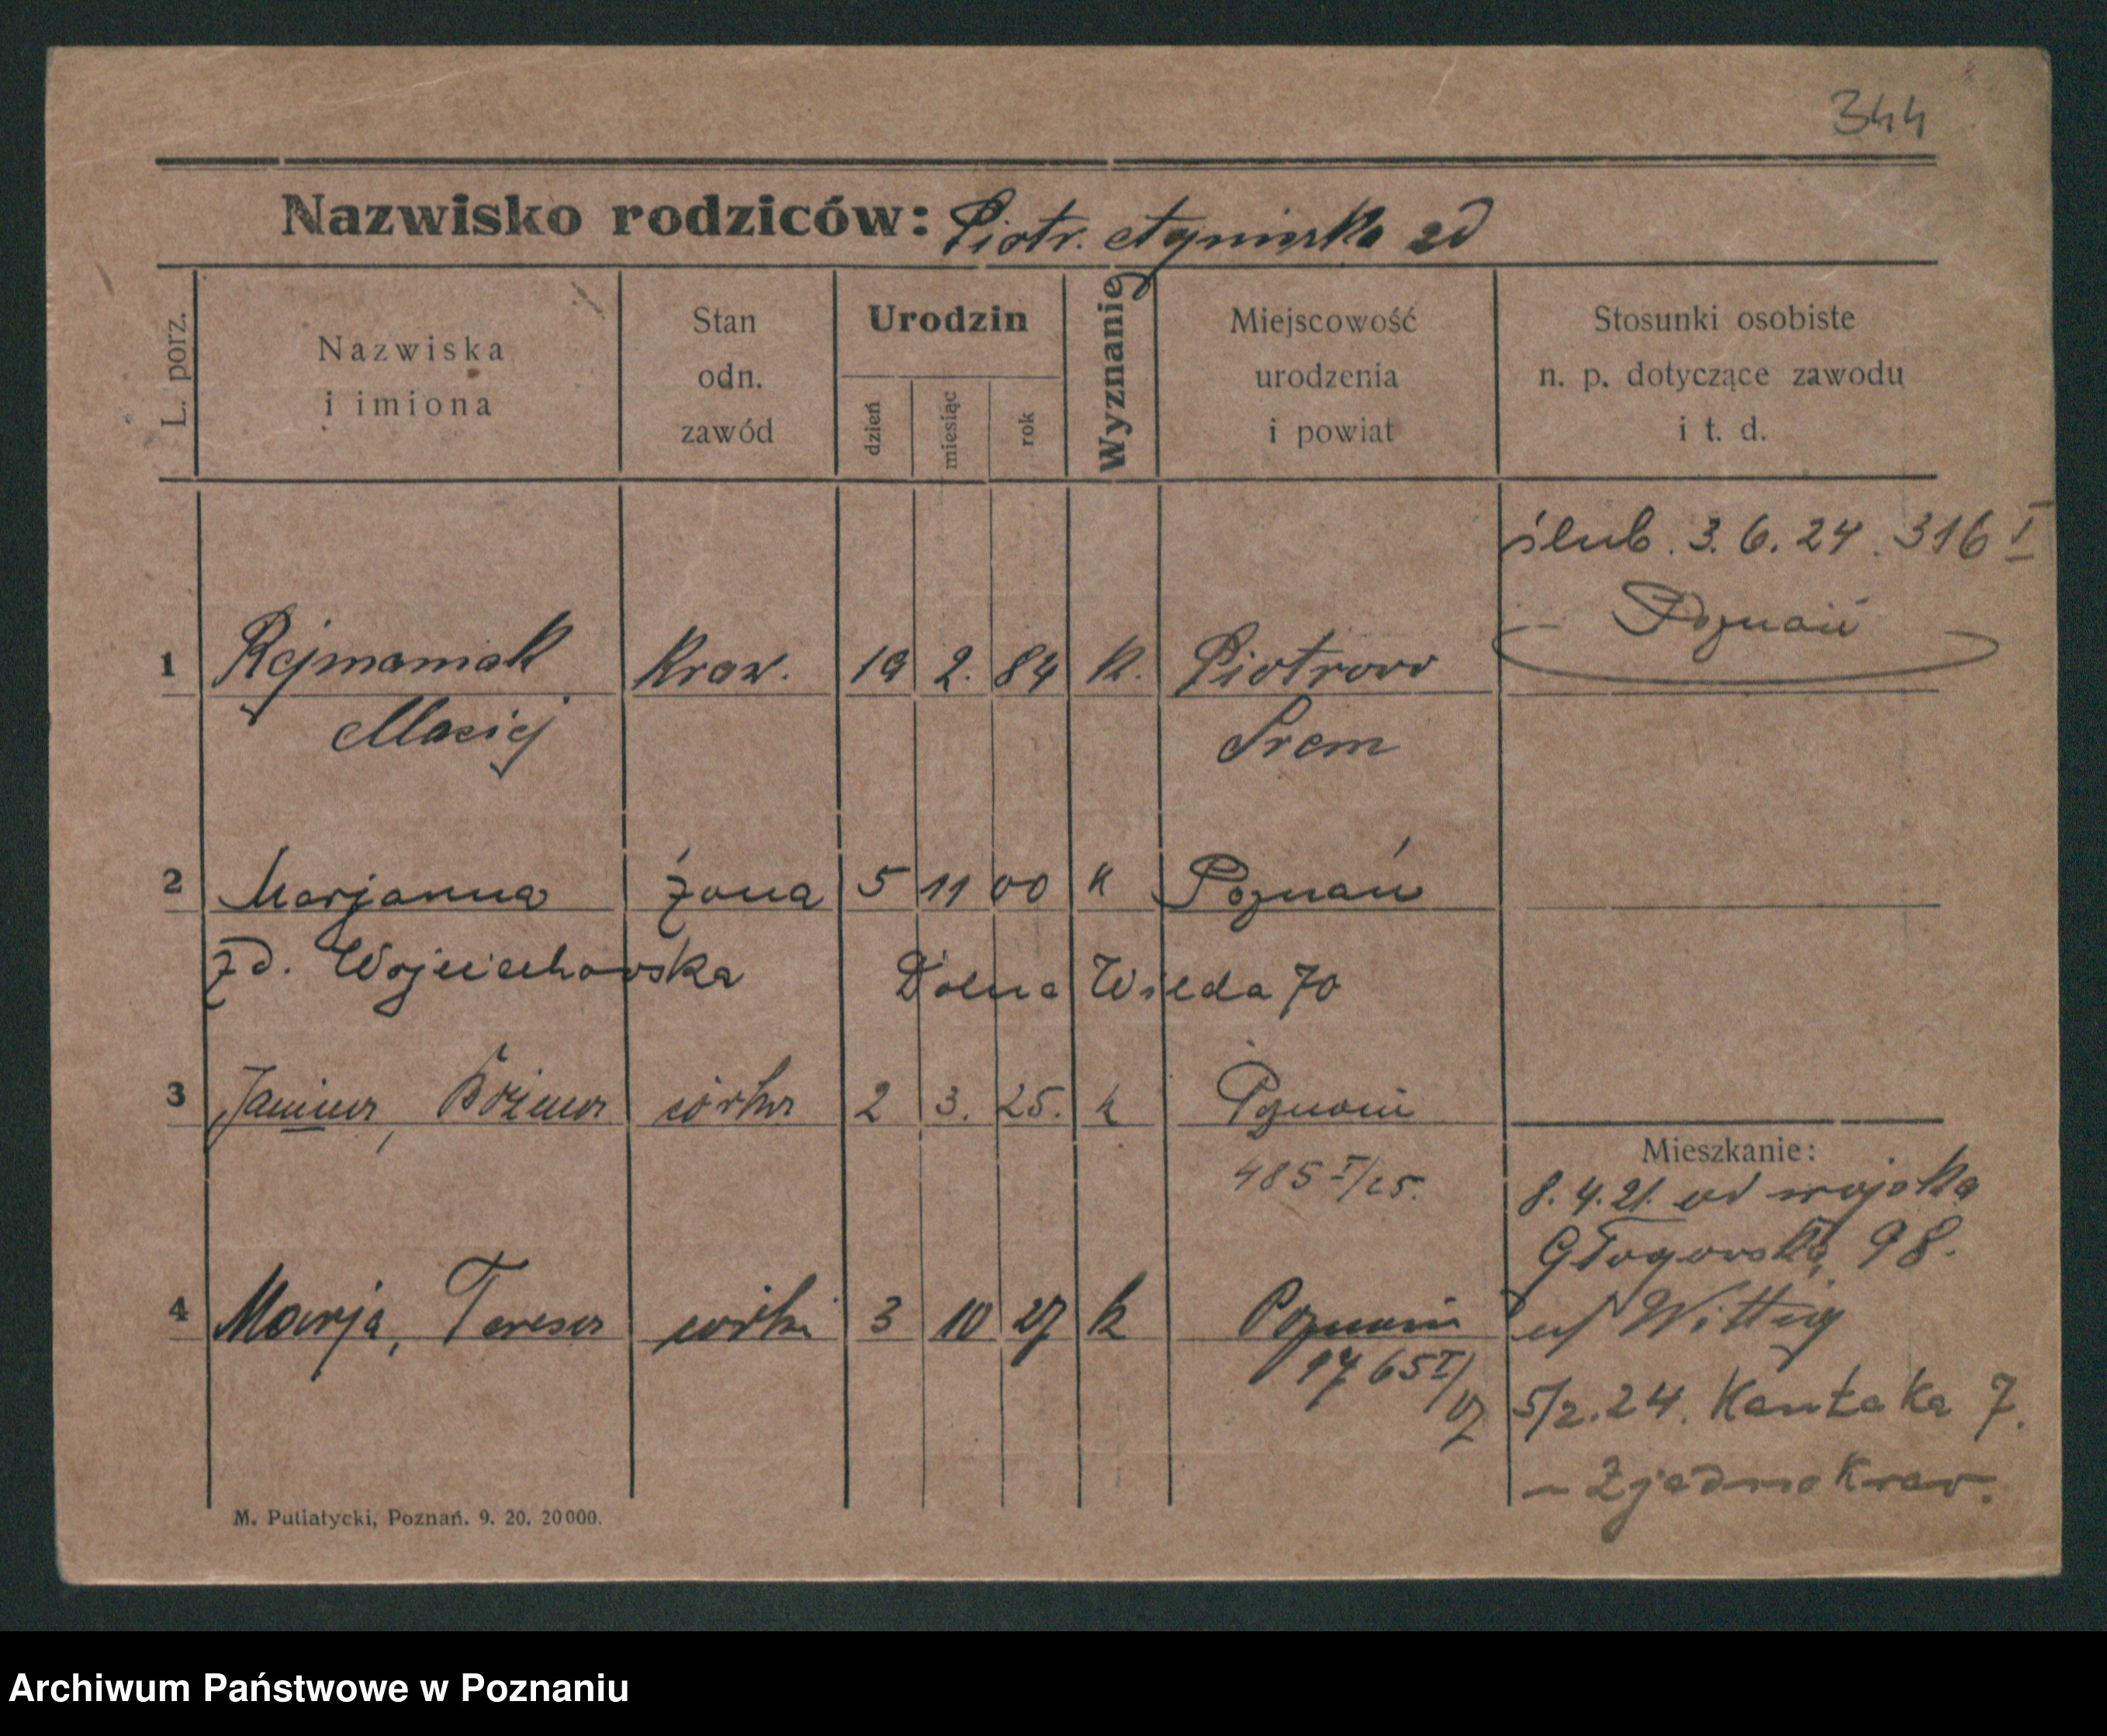 344
Nazwisko rodziców: Piotr. Agnieszka zd
L. porz.
Nazwiska
i imiona
Stan
odn.
zawód
Urodzin
dzień
miesiąc
rok
Wyznanie
Miejscowość
urodzenia
i powiat
Stosunki osobiste
n. p. dotyczące zawodu
i t. d.
ślub. 3. 6. 24. 316 I
Poznań
1 Rejmaniak Kraw. 19 2. 84 K. Piotrowo
Maciej Srem
2 Marjanna żona 5 11 00 K Poznań
zd. Wojciechowska Dolna Wilda 70
3 Janina, Bożena córka 2 3. 25. k Poznań
485 I/25.
Mieszkanie:
8. 4. 21. od wojska
Głogowska 98.
4 Marja, Teresa córka 3 10 27 k Poznań
1765 I/27
u/ Wittig
5/2. 24. Kantaka 7.
M. Putiatycki, Poznań. 9. 20. 20000.
Archiwum Państwowe w Poznaniu